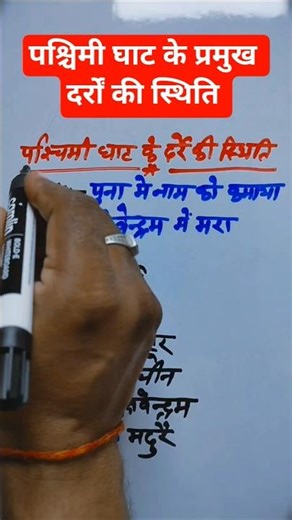 पश्चिमी घाट के प्रमुख
दर्रों की स्थिति
पश्चिमी घाट के दर्रे की स्थिति
पूना में नाम को कमाया
वेन्द्रम में मरा
चीन
वेन्द्रम
मदुरै
camlin